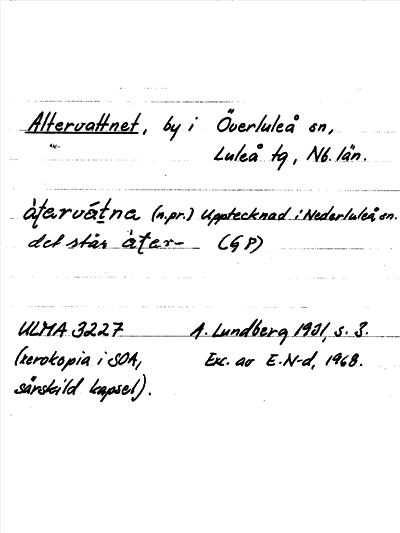 Altervattnet, by i Överluleå sn,
Luleå tg, Nb. län.
àṭarvátna (n.pr.) Upptecknad i Nederluleå sn.
det står àṭar- (G P)
ULMA 3227 A. Lundberg 1931, s. 3.
(xerokopia i SOA, Exc. av E. N-d, 1968.
särskild kapsel).